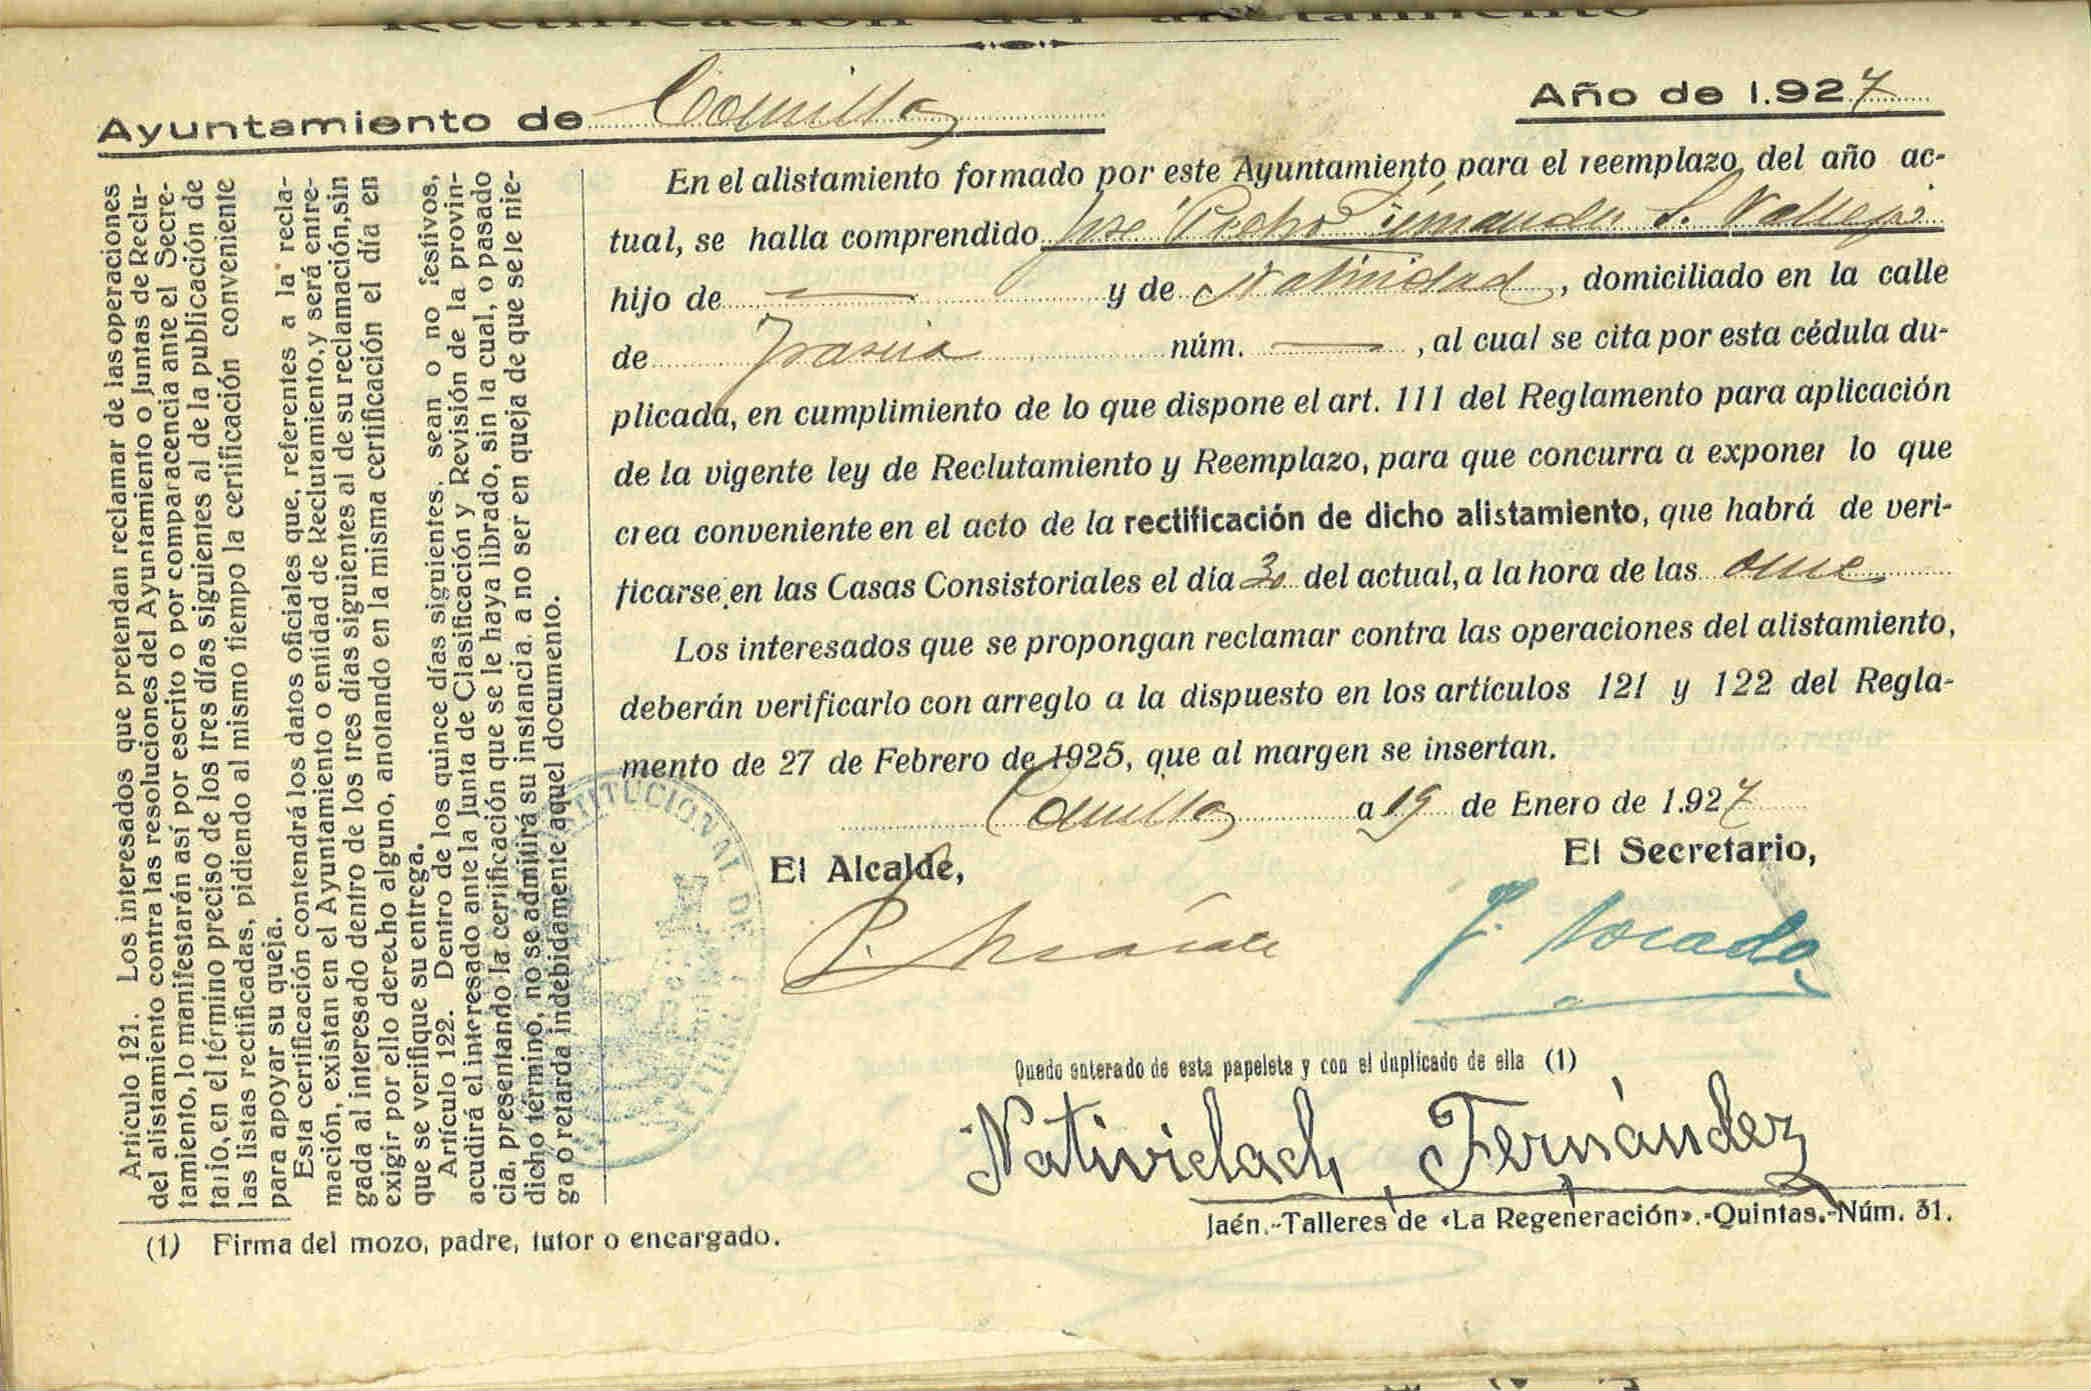 Rectificación del alistamiento
Ayuntamiento de Comillas
Año de 1.927
En el alistamiento formado por este Ayuntamiento para el reemplazo del año ac-
tual, se halla comprendido José Pedro Fernández S. Vallejo
hijo de — y de Natividad, domiciliado en la calle
de núm. —, al cual se cita por esta cédula du-
plicada, en cumplimiento de lo que dispone el art. 111 del Reglamento para aplicación
de la vigente ley de Reclutamiento y Reemplazo, para que concurra a exponer lo que
crea conveniente en el acto de la rectificación de dicho alistamiento, que habrá de veri-
ficarse en las Casas Consistoriales el día 30 del actual, a la hora de las once
Los interesados que se propongan reclamar contra las operaciones del alistamiento,
deberán verificarlo con arreglo a la dispuesto en los artículos 121 y 122 del Regla-
mento de 27 de Febrero de 1925, que al margen se insertan.
Comillas a 19 de Enero de 1.927
El Alcalde,
El Secretario,
Quedo enterado de esta papeleta y con el duplicado de ella (1)
Natividad Fernández
Jaén.-Talleres de «La Regeneración».-Quintas.-Núm. 31.
Artículo 121. Los interesados que pretendan reclamar de las operaciones
del alistamiento contra las resoluciones del Ayuntamiento o Juntas de Reclu-
tamiento, lo manifestarán así por escrito o por comparacencia ante el Secre-
tario, en el término preciso de los tres días siguientes al de la publicación de
las listas rectificadas, pidiendo al mismo tiempo la certificación conveniente
para apoyar su queja.
Esta certificación contendrá los datos oficiales que, referentes a la recla-
mación, existan en el Ayuntamiento o entidad de Reclutamiento, y será entre-
gada al interesado dentro de los tres días siguientes al de su reclamación, sin
exigir por ello derecho alguno, anotando en la misma certificación el día en
que se verifique su entrega.
Artículo 122. Dentro de los quince días siguientes, sean o no festivos,
acudirá el interesado ante la Junta de Clasificación y Revisión de la provin-
cia, presentando la certificación que se le haya librado, sin la cual, o pasado
dicho término, no se admitirá su instancia, a no ser en queja de que se le nie-
ga o retarda indebidamente aquel documento.
(1) Firma del mozo, padre, tutor o encargado.